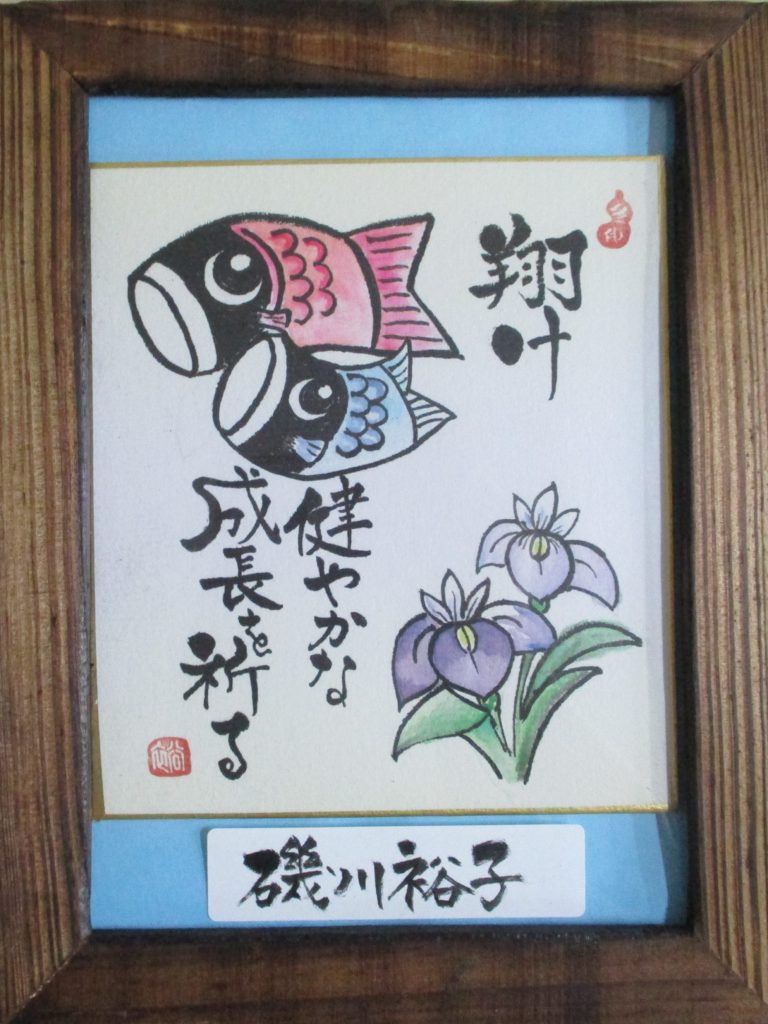 翔け
健やかな
成長を祈る
磯川裕子